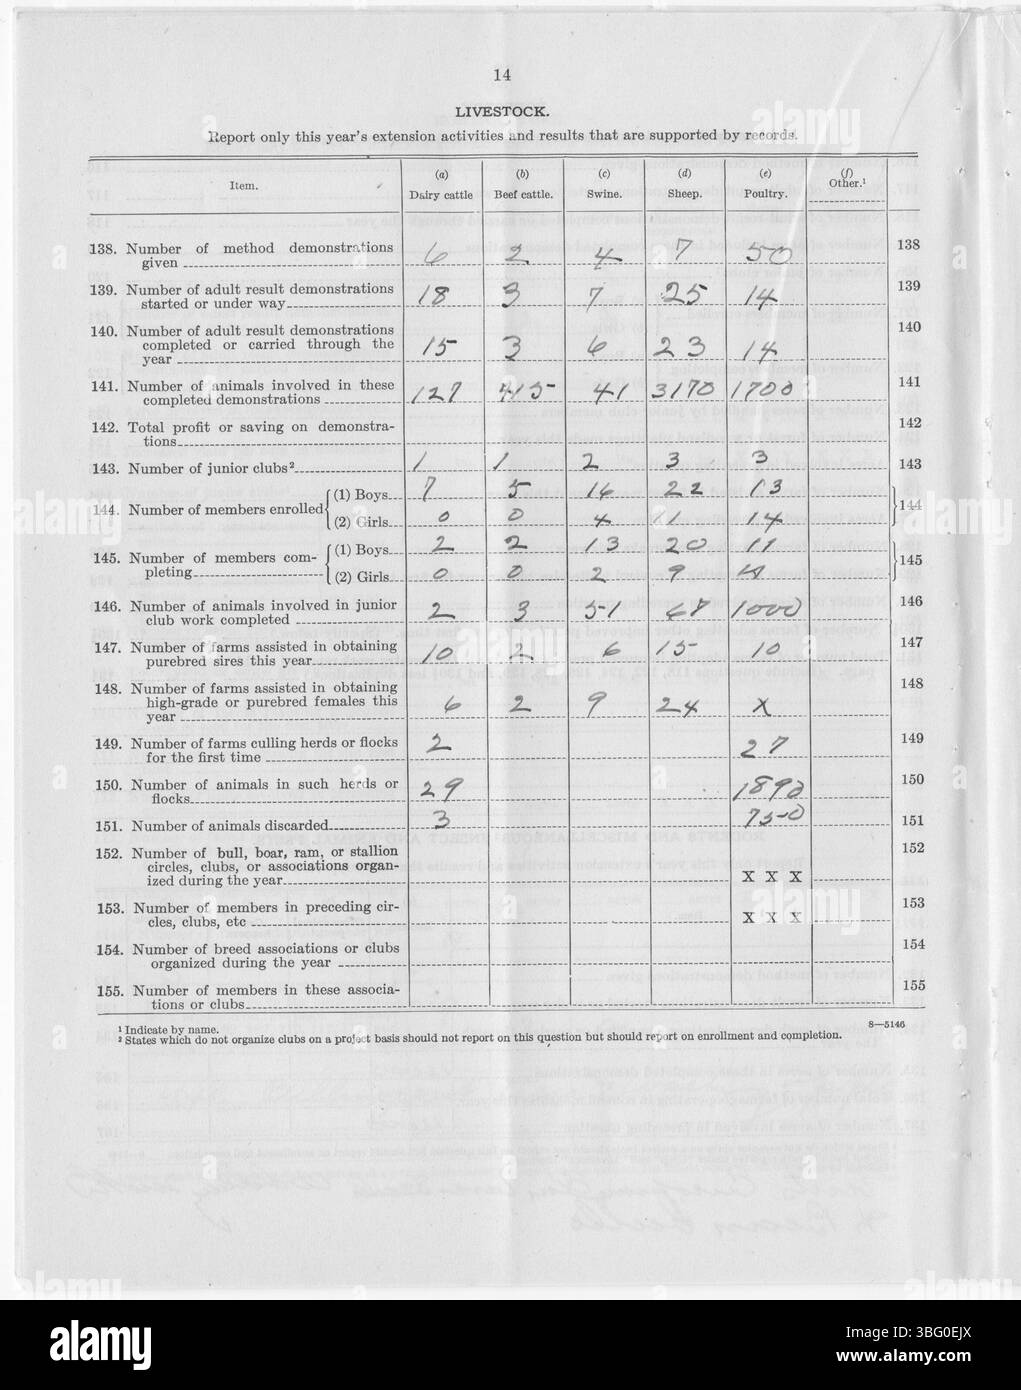 14
LIVESTOCK.
Report only this year's extension activities and results that are supported by records.
Item. (a) Dairy cattle (b) Beef cattle. (c) Swine. (d) Sheep. (e) Poultry. (f) Other.¹
138. Number of method demonstrations
given 6 2 4 7 50 138
139. Number of adult result demonstrations
started or under way 18 3 7 25 14 139
140. Number of adult result demonstrations
completed or carried through the
year 15 3 6 23 14 140
141. Number of animals involved in these
completed demonstrations 127 415 41 3170 1700 141
142. Total profit or saving on demonstra-
tions 142
143. Number of junior clubs² 1 1 2 3 3 143
144. Number of members enrolled (1) Boys 7 5 16 22 13 144
(2) Girls 0 0 4 11 14
145. Number of members com-
pleting (1) Boys 2 2 13 20 11 145
(2) Girls 0 0 2 9
146. Number of animals involved in junior
club work completed 2 3 51 67 1000 146
147. Number of farms assisted in obtaining
purebred sires this year 10 2 6 15 10 147
148. Number of farms assisted in obtaining
high-grade or purebred females this
year 6 2 9 24 X 148
149. Number of farms culling herds or flocks
for the first time 2 27 149
150. Number of animals in such herds or
flocks 29 1890 150
151. Number of animals discarded 3 750 151
152. Number of bull, boar, ram, or stallion
circles, clubs, or associations organ-
ized during the year X X X 152
153. Number of members in preceding cir-
cles, clubs, etc X X X 153
154. Number of breed associations or clubs
organized during the year 154
155. Number of members in these associa-
tions or clubs 155
¹ Indicate by name. 8—5146
² States which do not organize clubs on a project basis should not report on this question but should report on enrollment and completion.
alamy
Image ID: 3BG0EJX
www.alamy.com